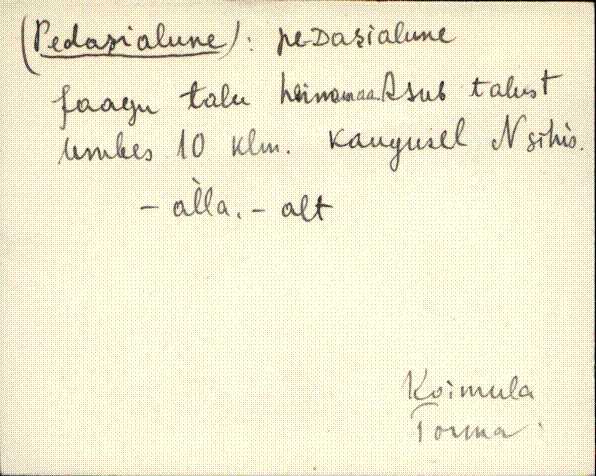 (Pedasialune): peDasialune
Jaagu talu heinamaa. Asub talust
umbes 10 klm. kaugusel N sihis.
- àlla. - alt
Koimula
Torma.